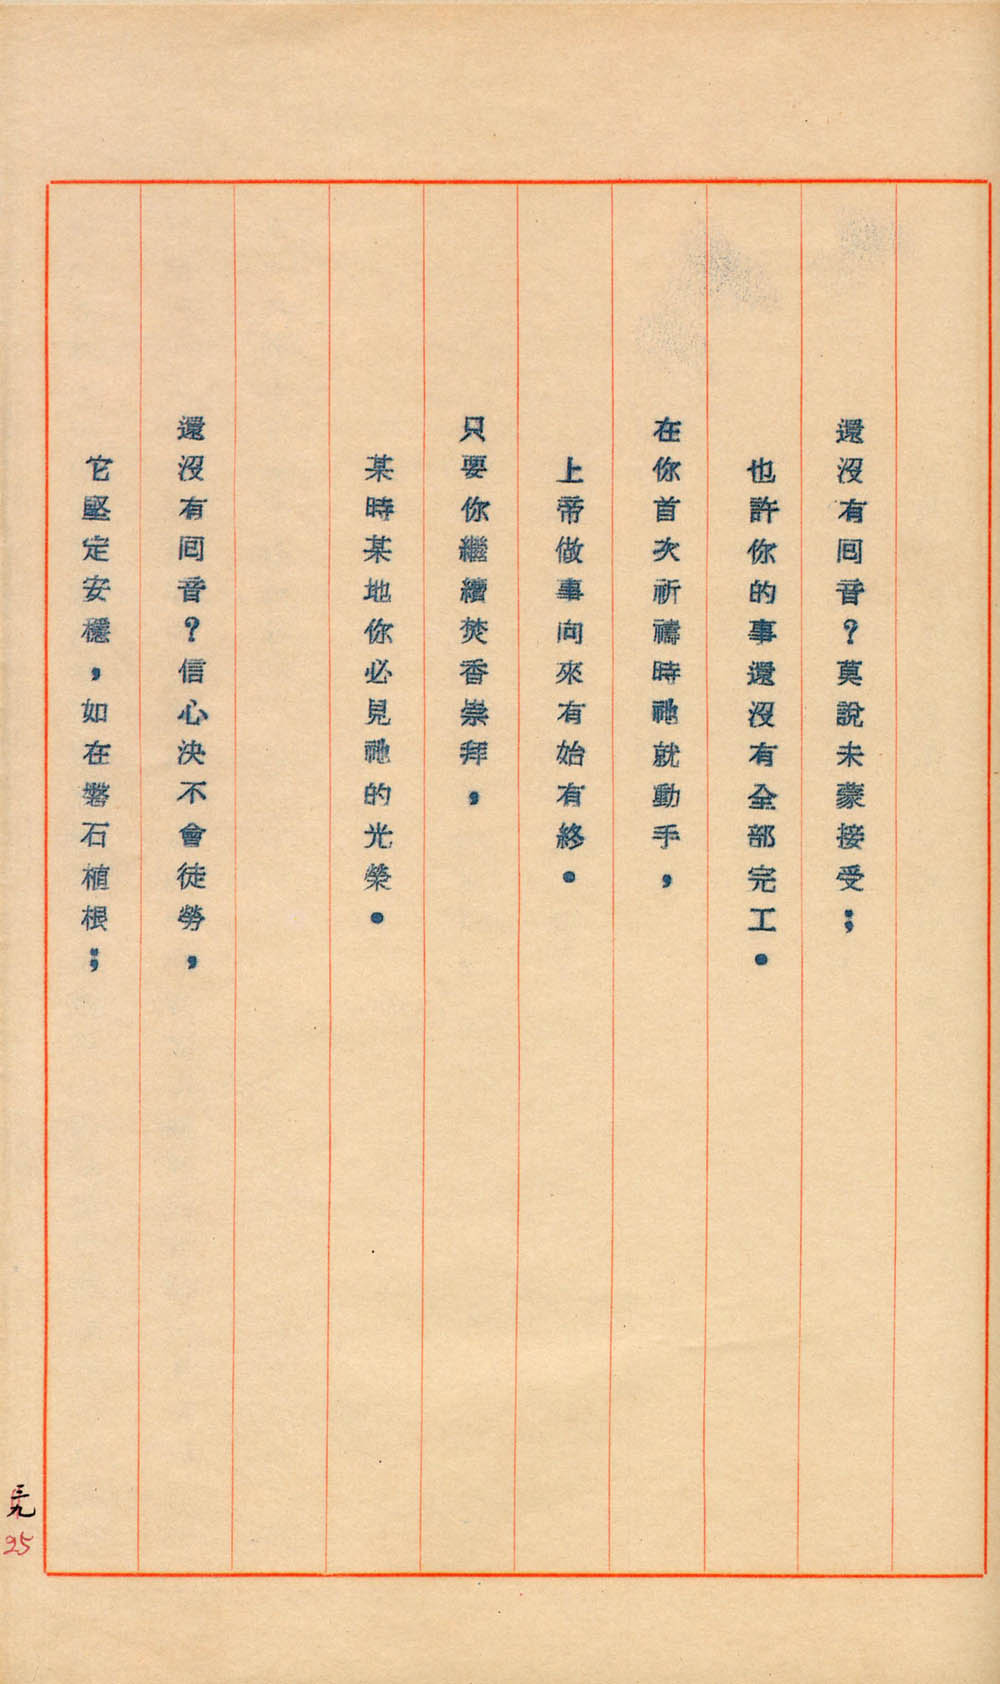 還沒有回音?莫說未蒙接受;
也許你的事還沒有全部完工。
在你首次祈禱時祂就動手,
上帝做事向來有始有終。
只要你繼續焚香崇拜,
某時某地你必見祂的光榮。
還沒有回音?信心決不會徒勞,
它堅定安穩,如在磐石植根;
25